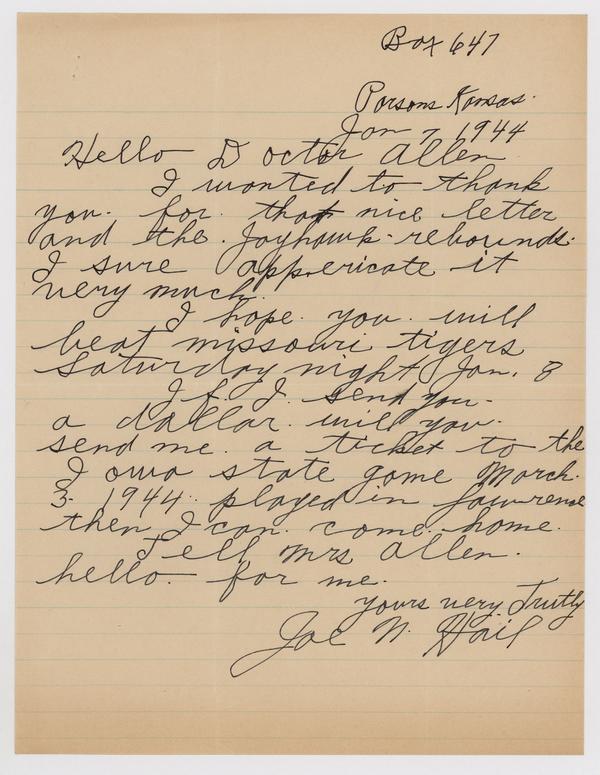 Box 647
Parsons Kansas.
Jan 7 1944
Hello Doctor Allen
I wanted to thank
you. for. that nice letter
and the. Jayhawk-rebounds.
I sure appericate it
very much.
I hope. you. will
beat missouri tigers
saturday night Jan. 8
If I. send you-
a dallar. will you.
send me. a ticket to the
Iowa state game March.
3- 1944. played in Lawrence
then I can. come. home.
Tell Mrs Allen.
hello. for me.
yours very Truly
Joe N. Hail